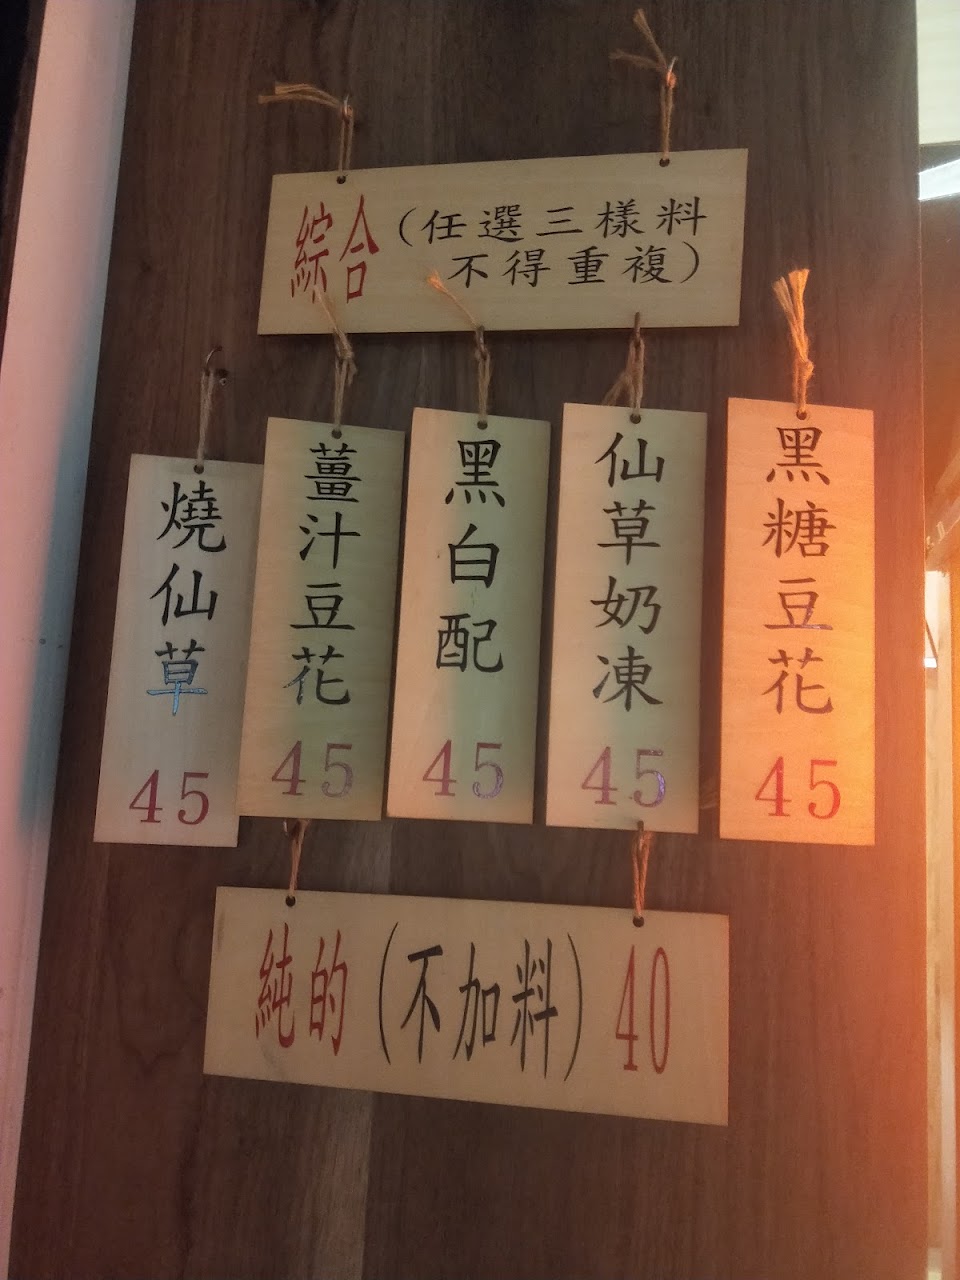 綜合(任選三樣料
不得重複)
燒仙草
45
薑汁豆花
45
黑白配
45
仙草奶凍
45
黑糖豆花
45
純的(不加料) 40